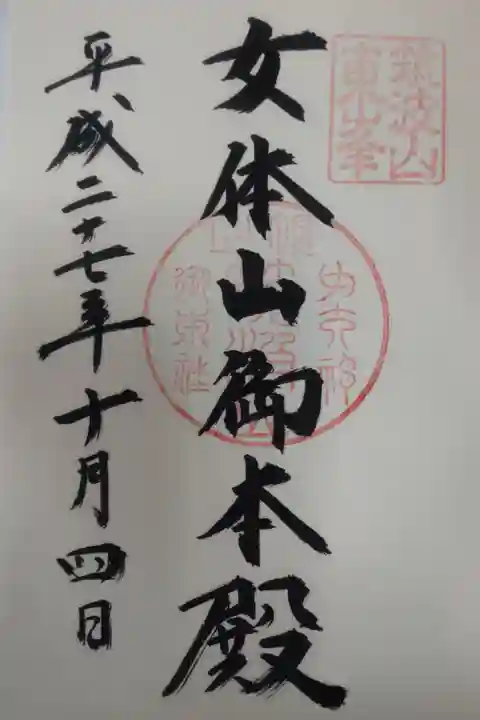 筑波山
東山峯
女体山御本殿
平成二十七年十月四日